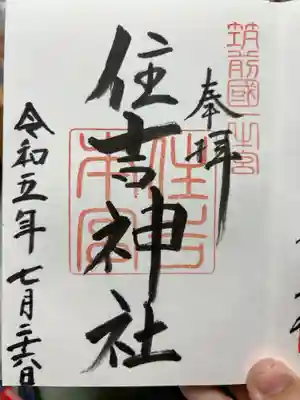 筑前國一之宮
奉拝
住吉神社
住吉
本宮
令和五年七月二十六日